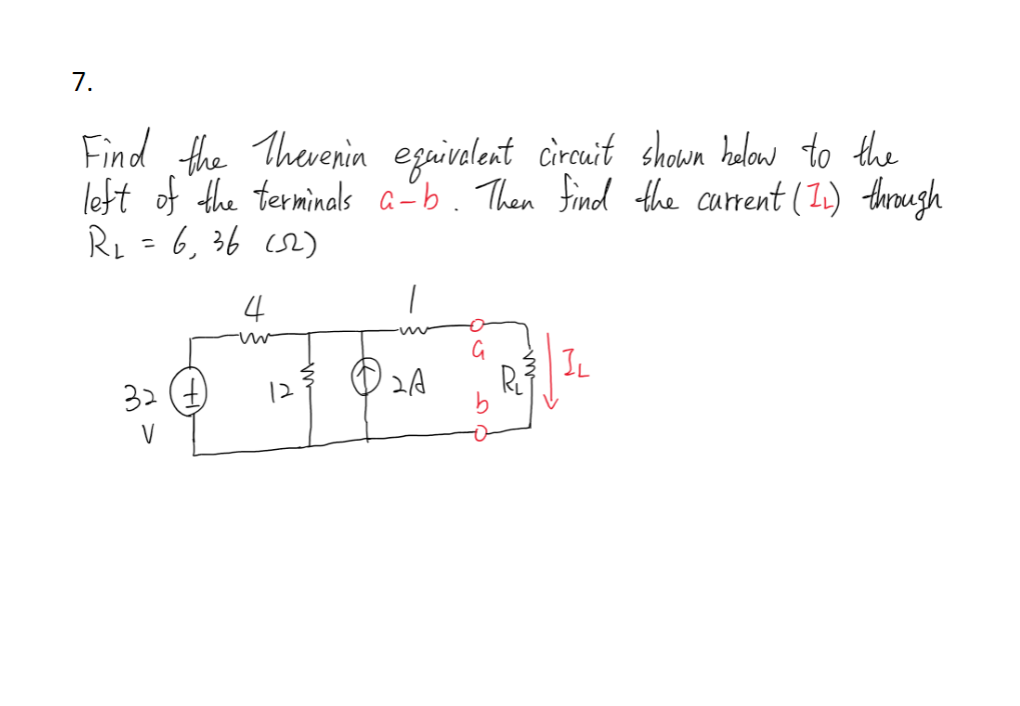 7.
Find the Thevenin equivalent circuit shown below to the
left of the terminals a-b. Then find the current (IL) through
RL = 6, 36 (Ω)
4
1
32
V
+
-
12
2A
a
b
RL
IL